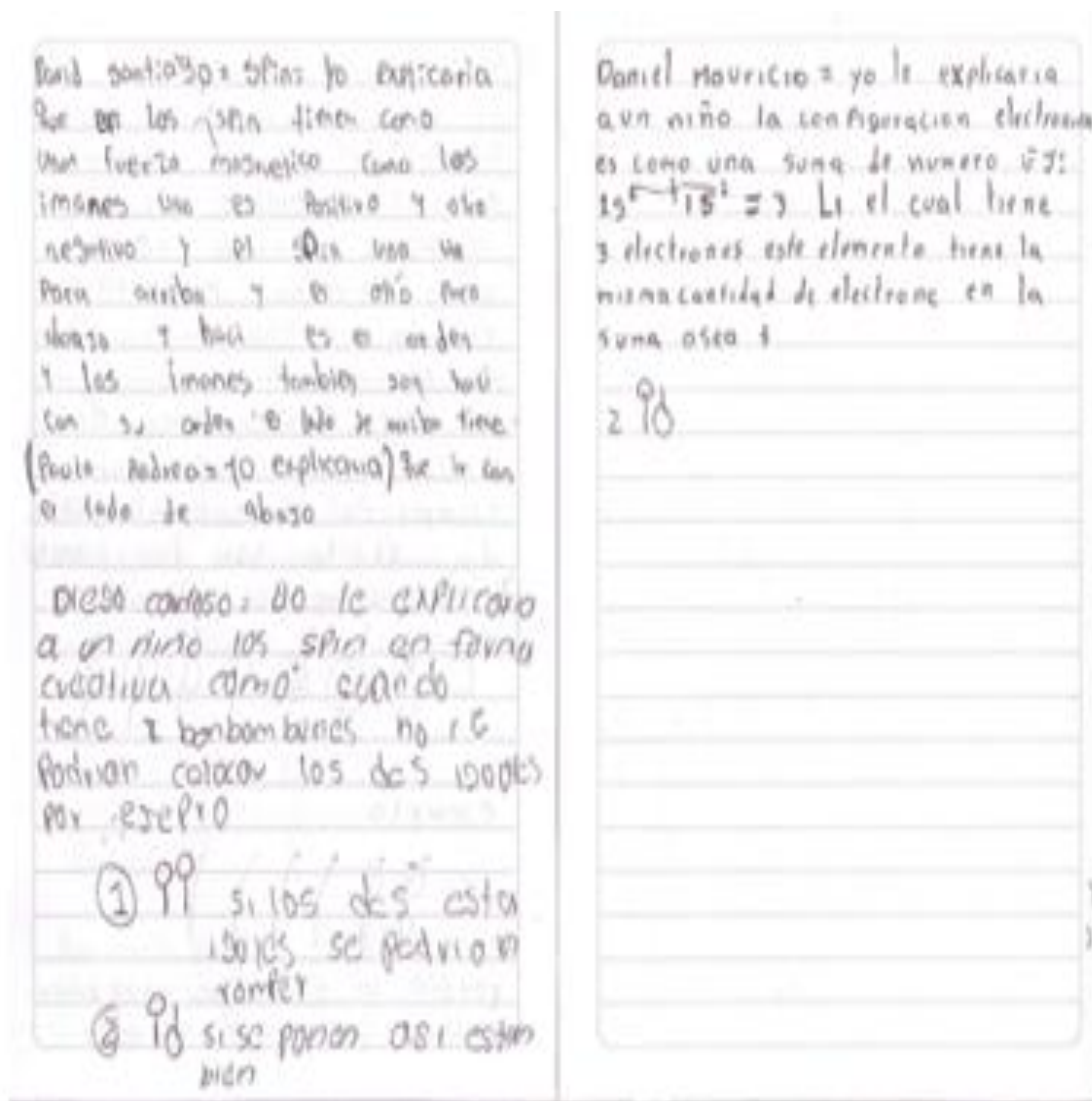 David santiago = spins yo explicaria
que en los spin tienen como
una fuerza magnetico como los
imanes uno es Positivo y otro
negativo y el spin uno va
Para arriba y el otro para
abajo y haci es el orden
Y los imanes tambien son haci
con su orden el lado de arriba tiene
(Paula Andrea = yo explicaria) que ir con
el lado de abajo
Diego cardoso: yo le explicario
a un niño los spin en forma
creativa como cuando
tiene 2 bonbombunes no se
Podrian colocar los dos igoales
por
① si los dos esta
se podrion
romper
② si se ponon asi estan
bien
Daniel Mauricio = yo le explicaria
a un niño la configuracion electronica
es como una suma de numero
= 3 Li el cual tiene
3 electrones este elemento tiene la
misma cantidad de electrone en la
suma osea
2